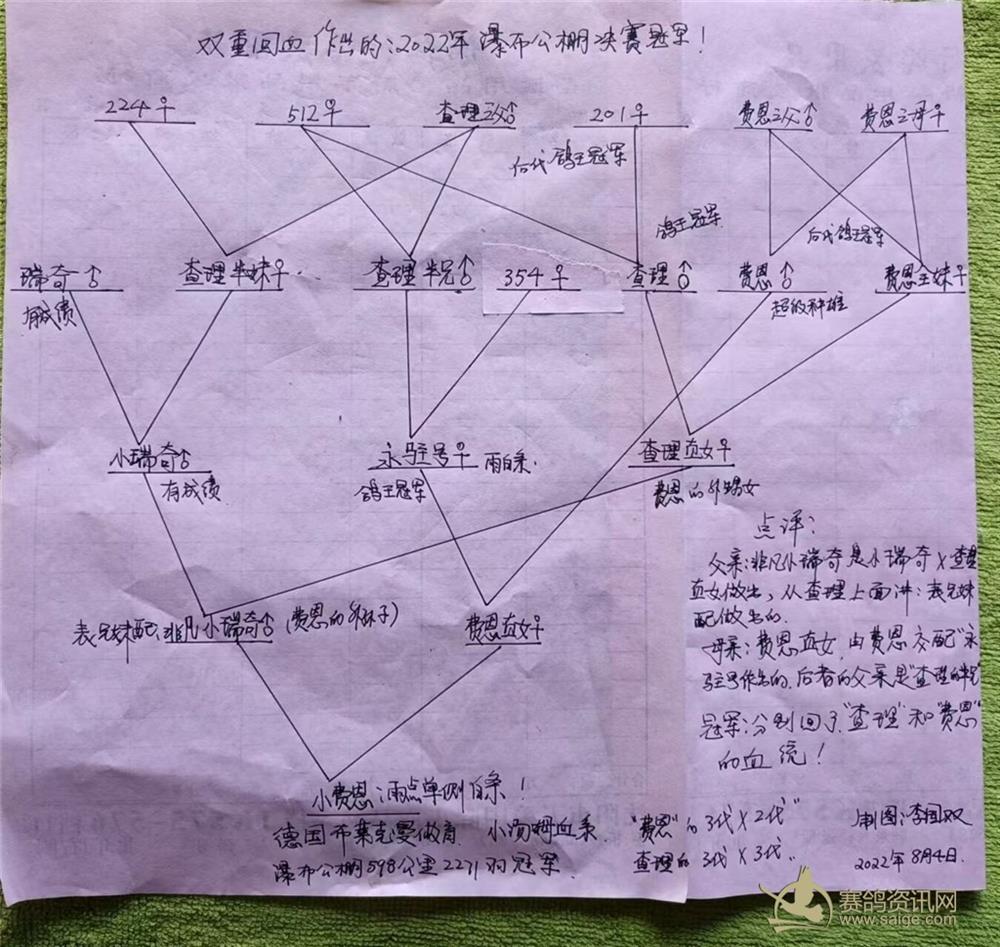 双重回血作出的:2022年瀑布公棚决赛冠军!
224♀ 512♀ 查理之父♂ 201♀ 费恩之父♂ 费恩之母♀
后代鸽王冠军
鸽王冠军 后代鸽王冠军
瑞奇♂ 查理半妹♀ 查理半兄♂ 354♀ 查理♂ 费恩♂ 费恩全妹♀
有成绩 超级种雄
小瑞奇♂ 永驻号♀ 雨白条. 查理直女♀
有成绩 鸽王冠军 费恩的外甥女
点评:
父亲:非凡小瑞奇是小瑞奇X查理
直女做出,从查理上面讲:表兄妹
配做出的.
表兄妹配:非凡小瑞奇♂(费恩的外孙子) 费恩直女♀
母亲:费恩直女,由费恩交配"永
驻号作出的.后者的父亲是"查理的半兄"
冠军:分别回了"查理"和"费恩"
的血统!
小费恩:雨点单侧白条!
德国布莱克曼做育. 小汤姆血系. "费恩"的3代X2代"
瀑布公棚598公里2271羽冠军. 查理的3代X3代"
制图:李国双
2022年8月4日.
赛鸽资讯网
www.saige.com